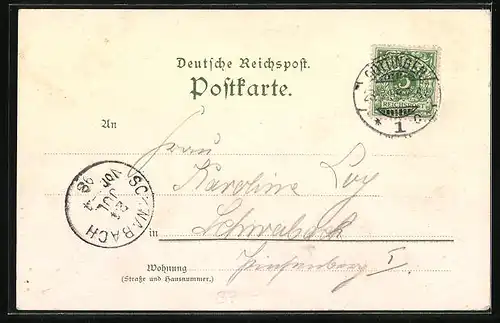 Deutsche Reichspost.
Postkarte.
GÖTTINGEN
1
5
REICHSPOST
An
Frau
Karoline Loy
SCHWABACH
24
JUL
98
in
Schwabach
Wohnung
(Straße und Hausnummer.)